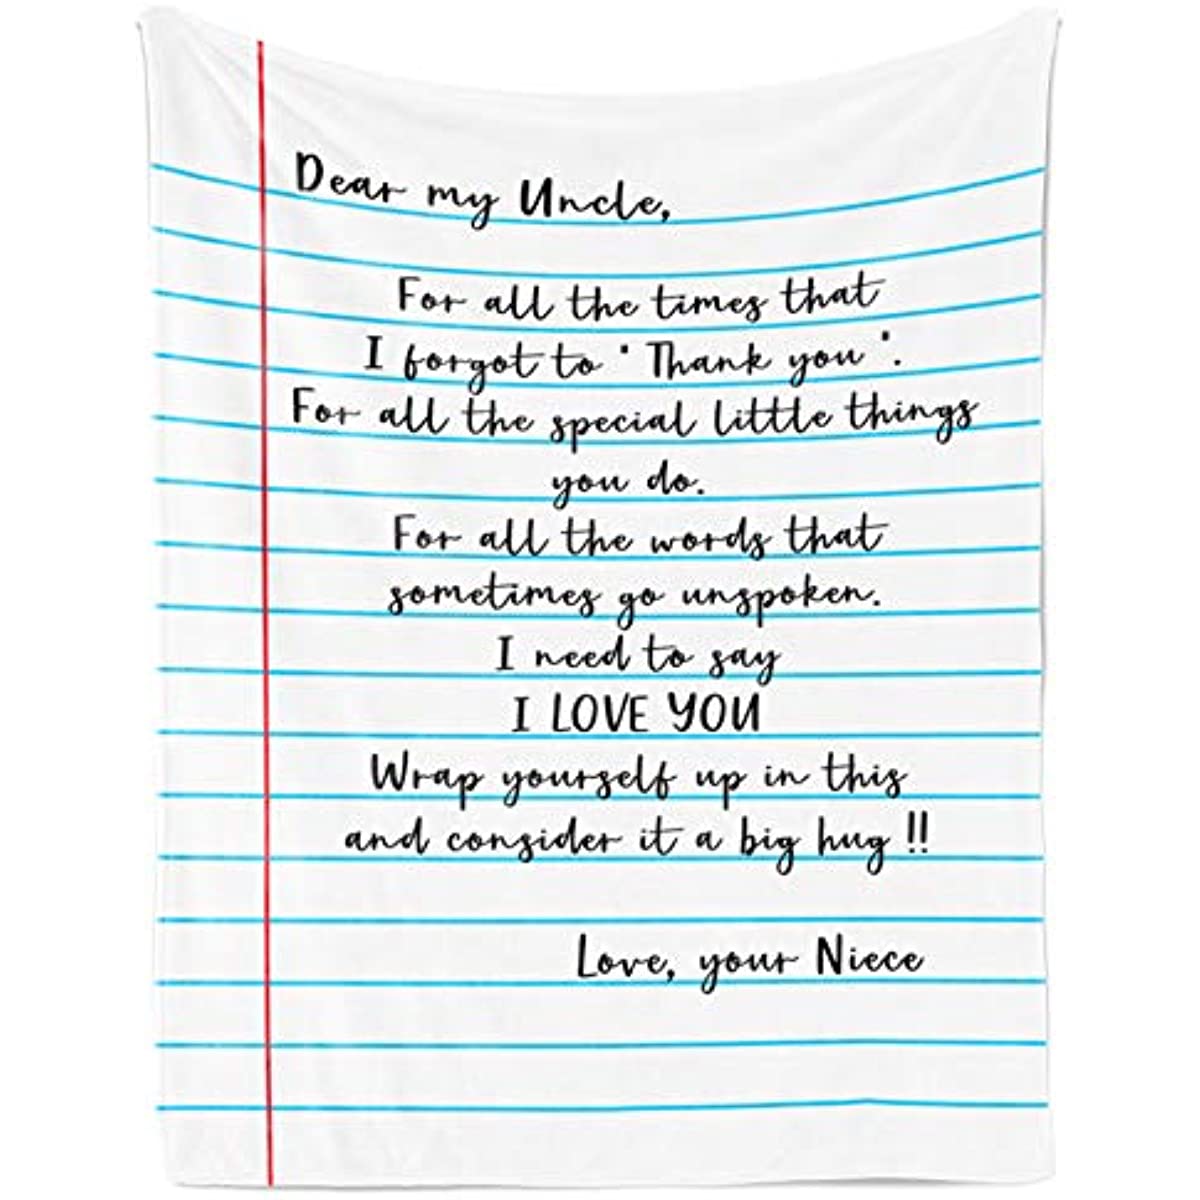 Dear my Uncle,
For all the times that
I forgot to " Thank you ".
For all the special little things
you do.
For all the words that
sometimes go unspoken.
I need to say
I LOVE YOU
Wrap yourself up in this
and consider it a big hug !!
Love, your Niece